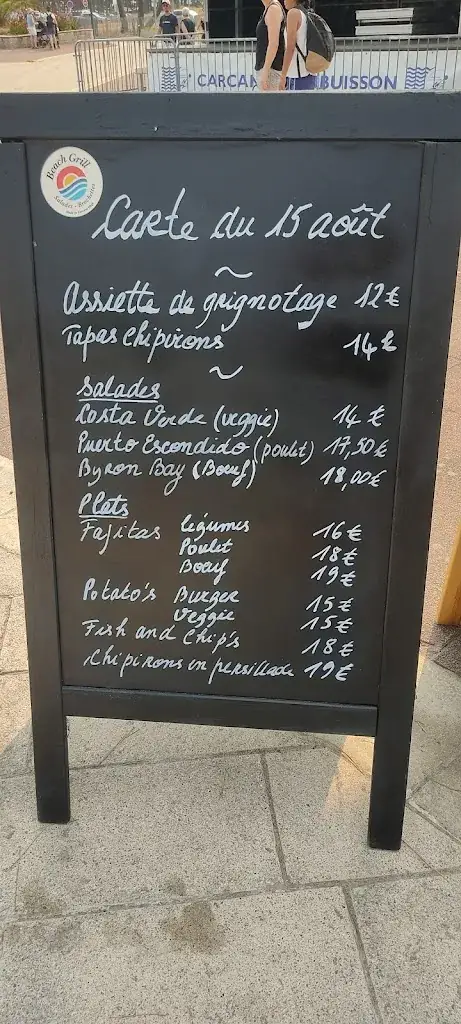 CARCAN BUISSON
Beach Grill
Salades - Brochettes
Carte du 15 août
Assiette de grignotage 12€
Tapas chipirons 14€
Salades
Costa Verde (veggie) 14€
Puerto Escondido (poulet) 17,50€
Byron Bay (Boeuf) 18,00€
Plats
Fajitas légumes 16€
Poulet 18€
Boeuf 19€
Potato's Burger 15€
Veggie 15€
Fish and Chip's 18€
Chipirons en persillade 19€